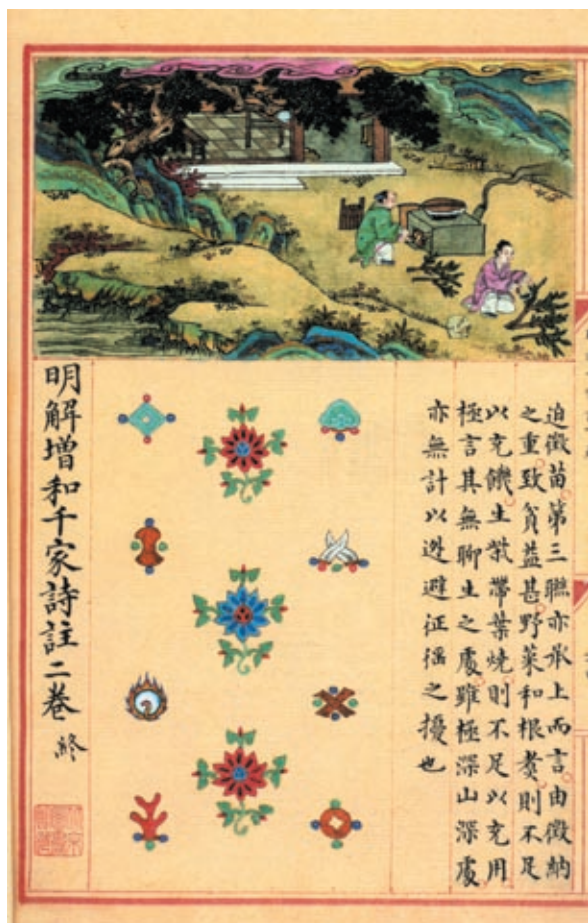 迫徵苗第三聯亦承上而言由徵納
之重致貧益甚野菜和根煑則不足
以充饑生柴帶葉燒則不足以充用
極言其無聊生之處雖極深山深處
亦無計以逃避征徭之擾也
明解增和千家詩註二卷 終